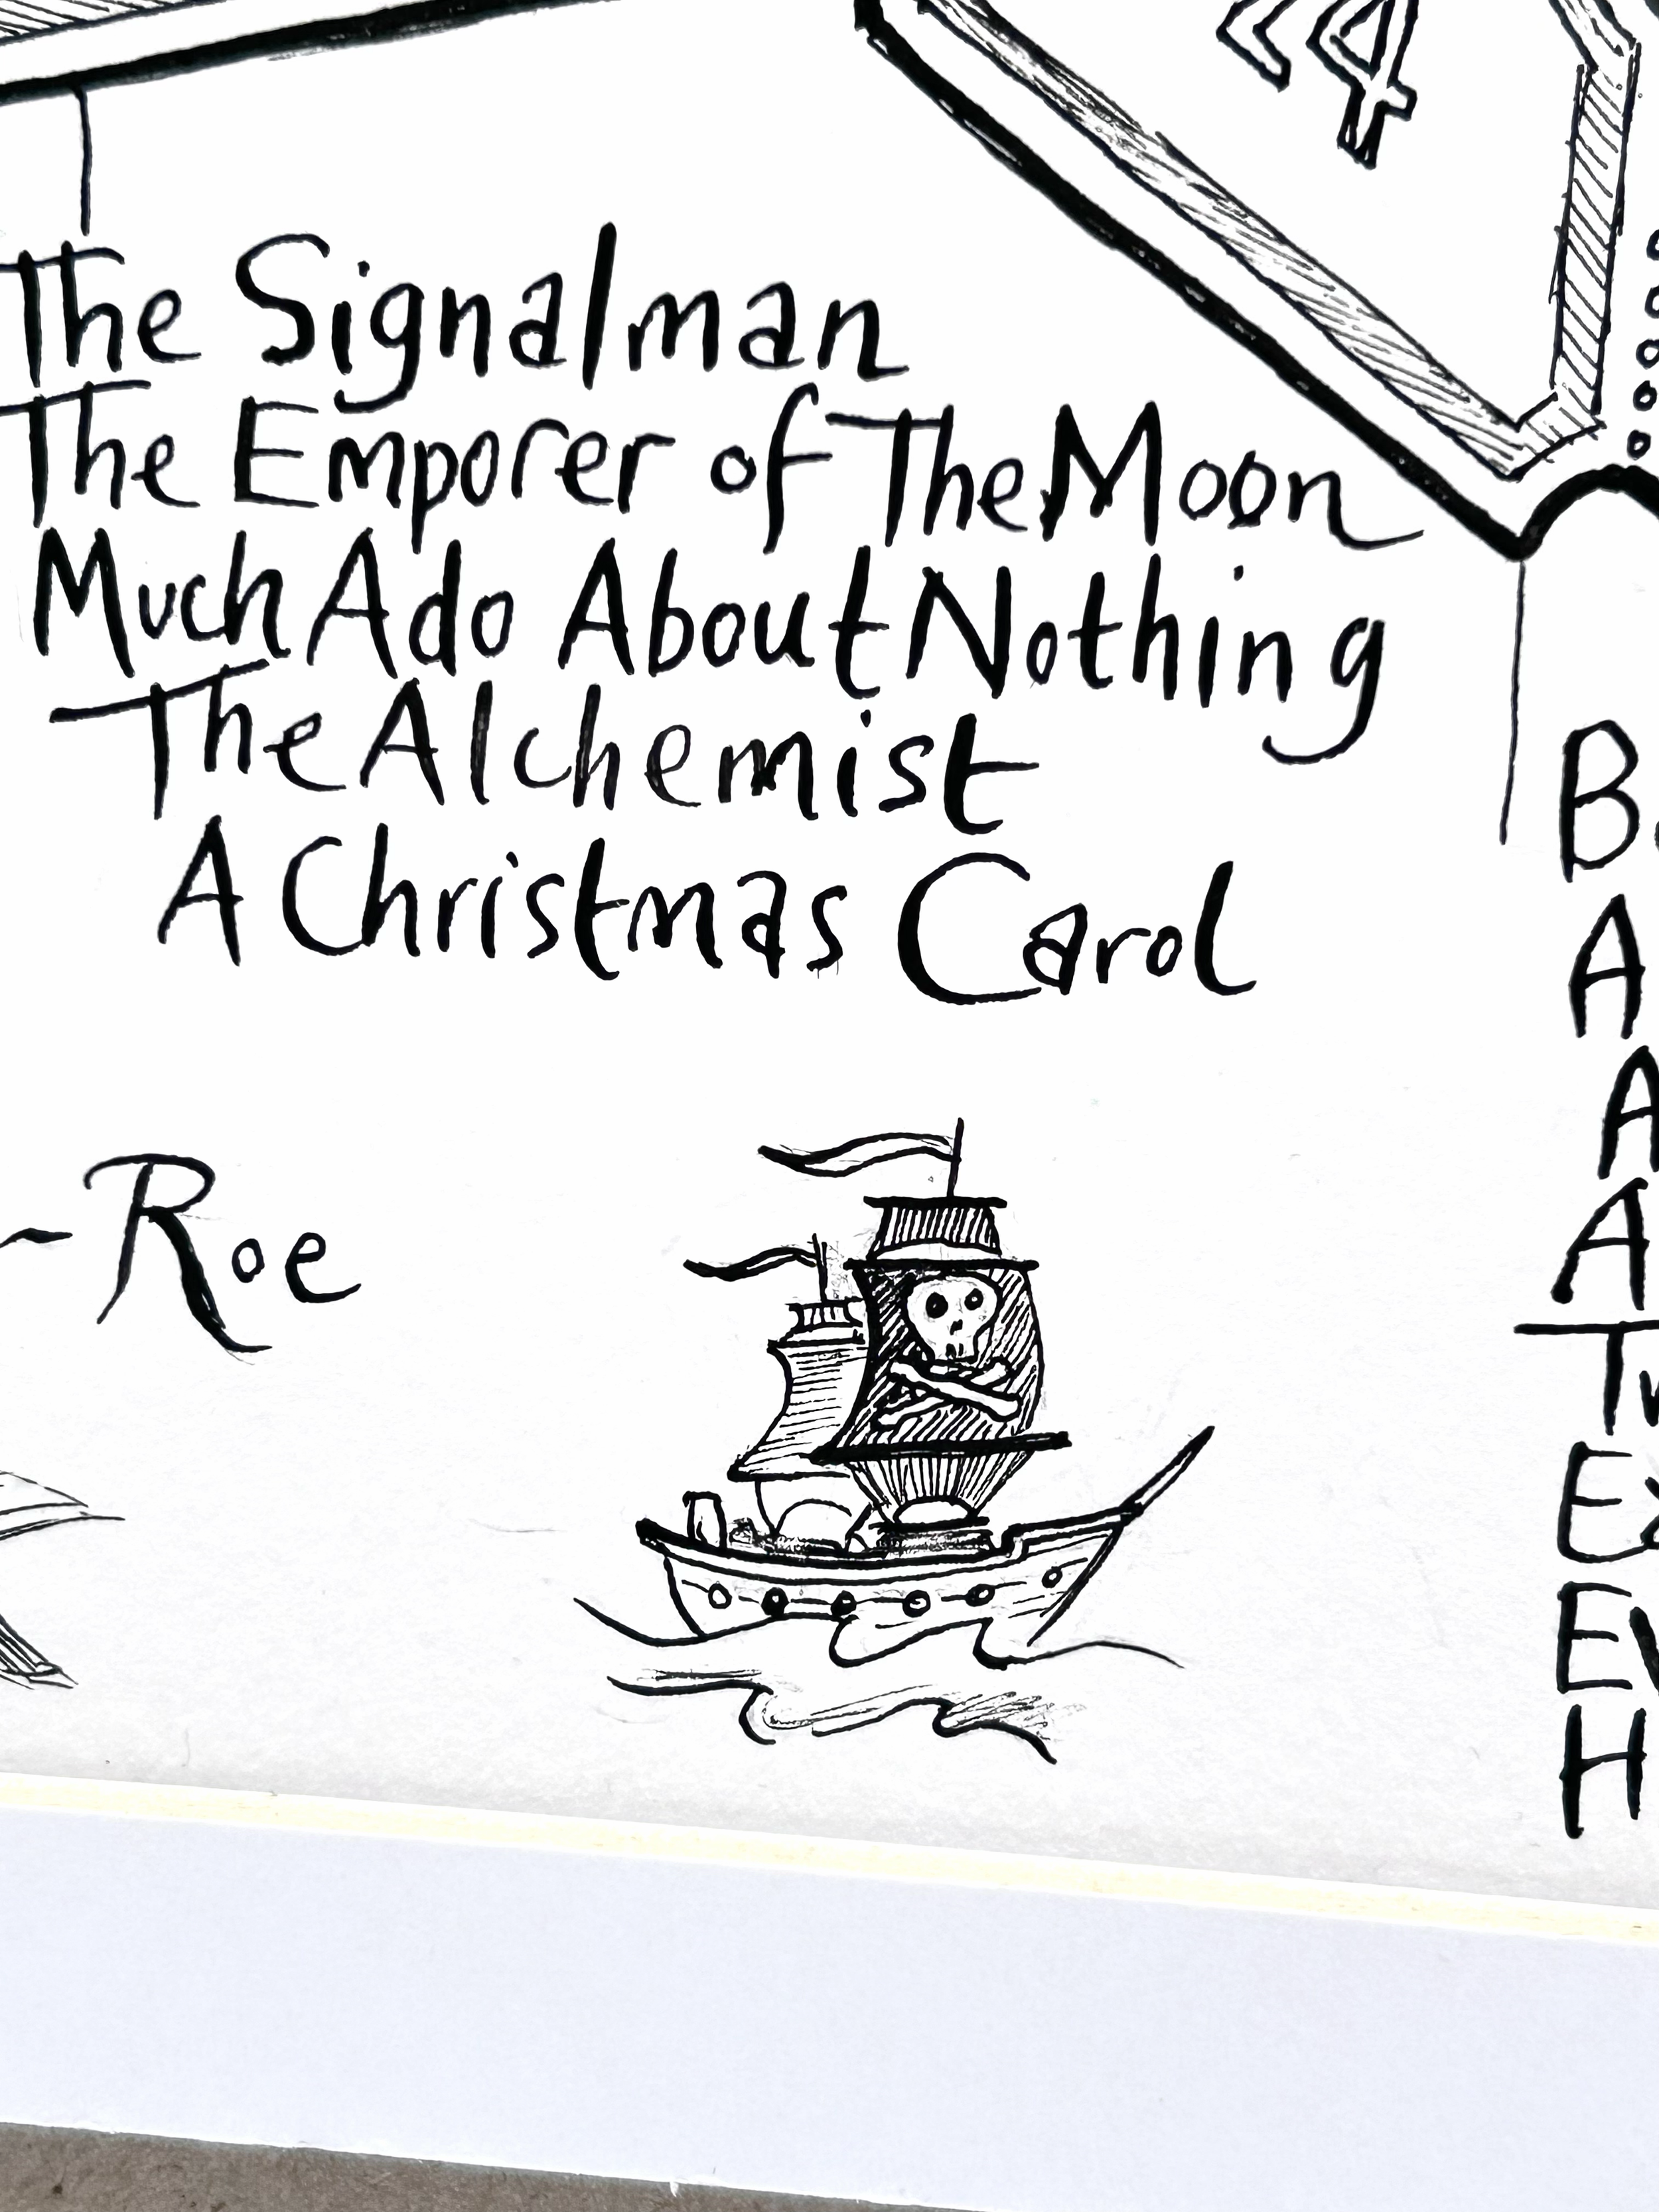 4
The Signalman
The Emporer of The Moon
Much Ado About Nothing
The Alchemist
A Christmas Carol
~Roe
B
A
A
A
Tw
Ex
Ev
H